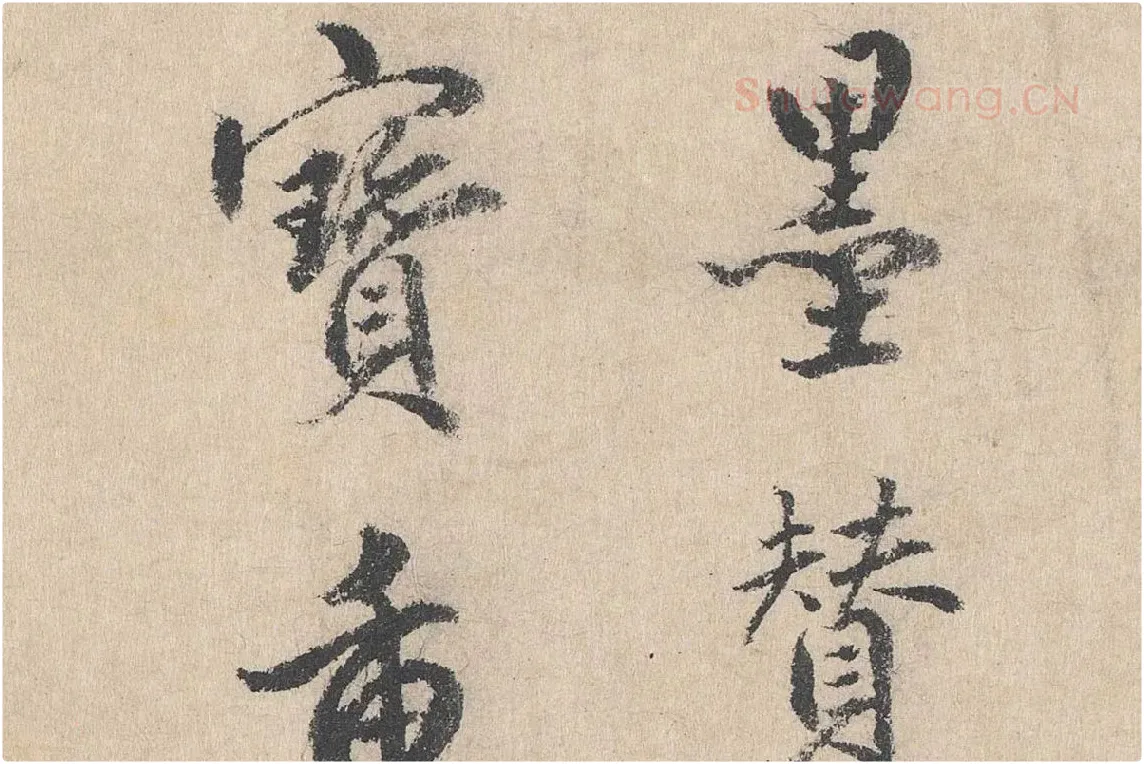 墨賛
寶重
Shufawang.CN